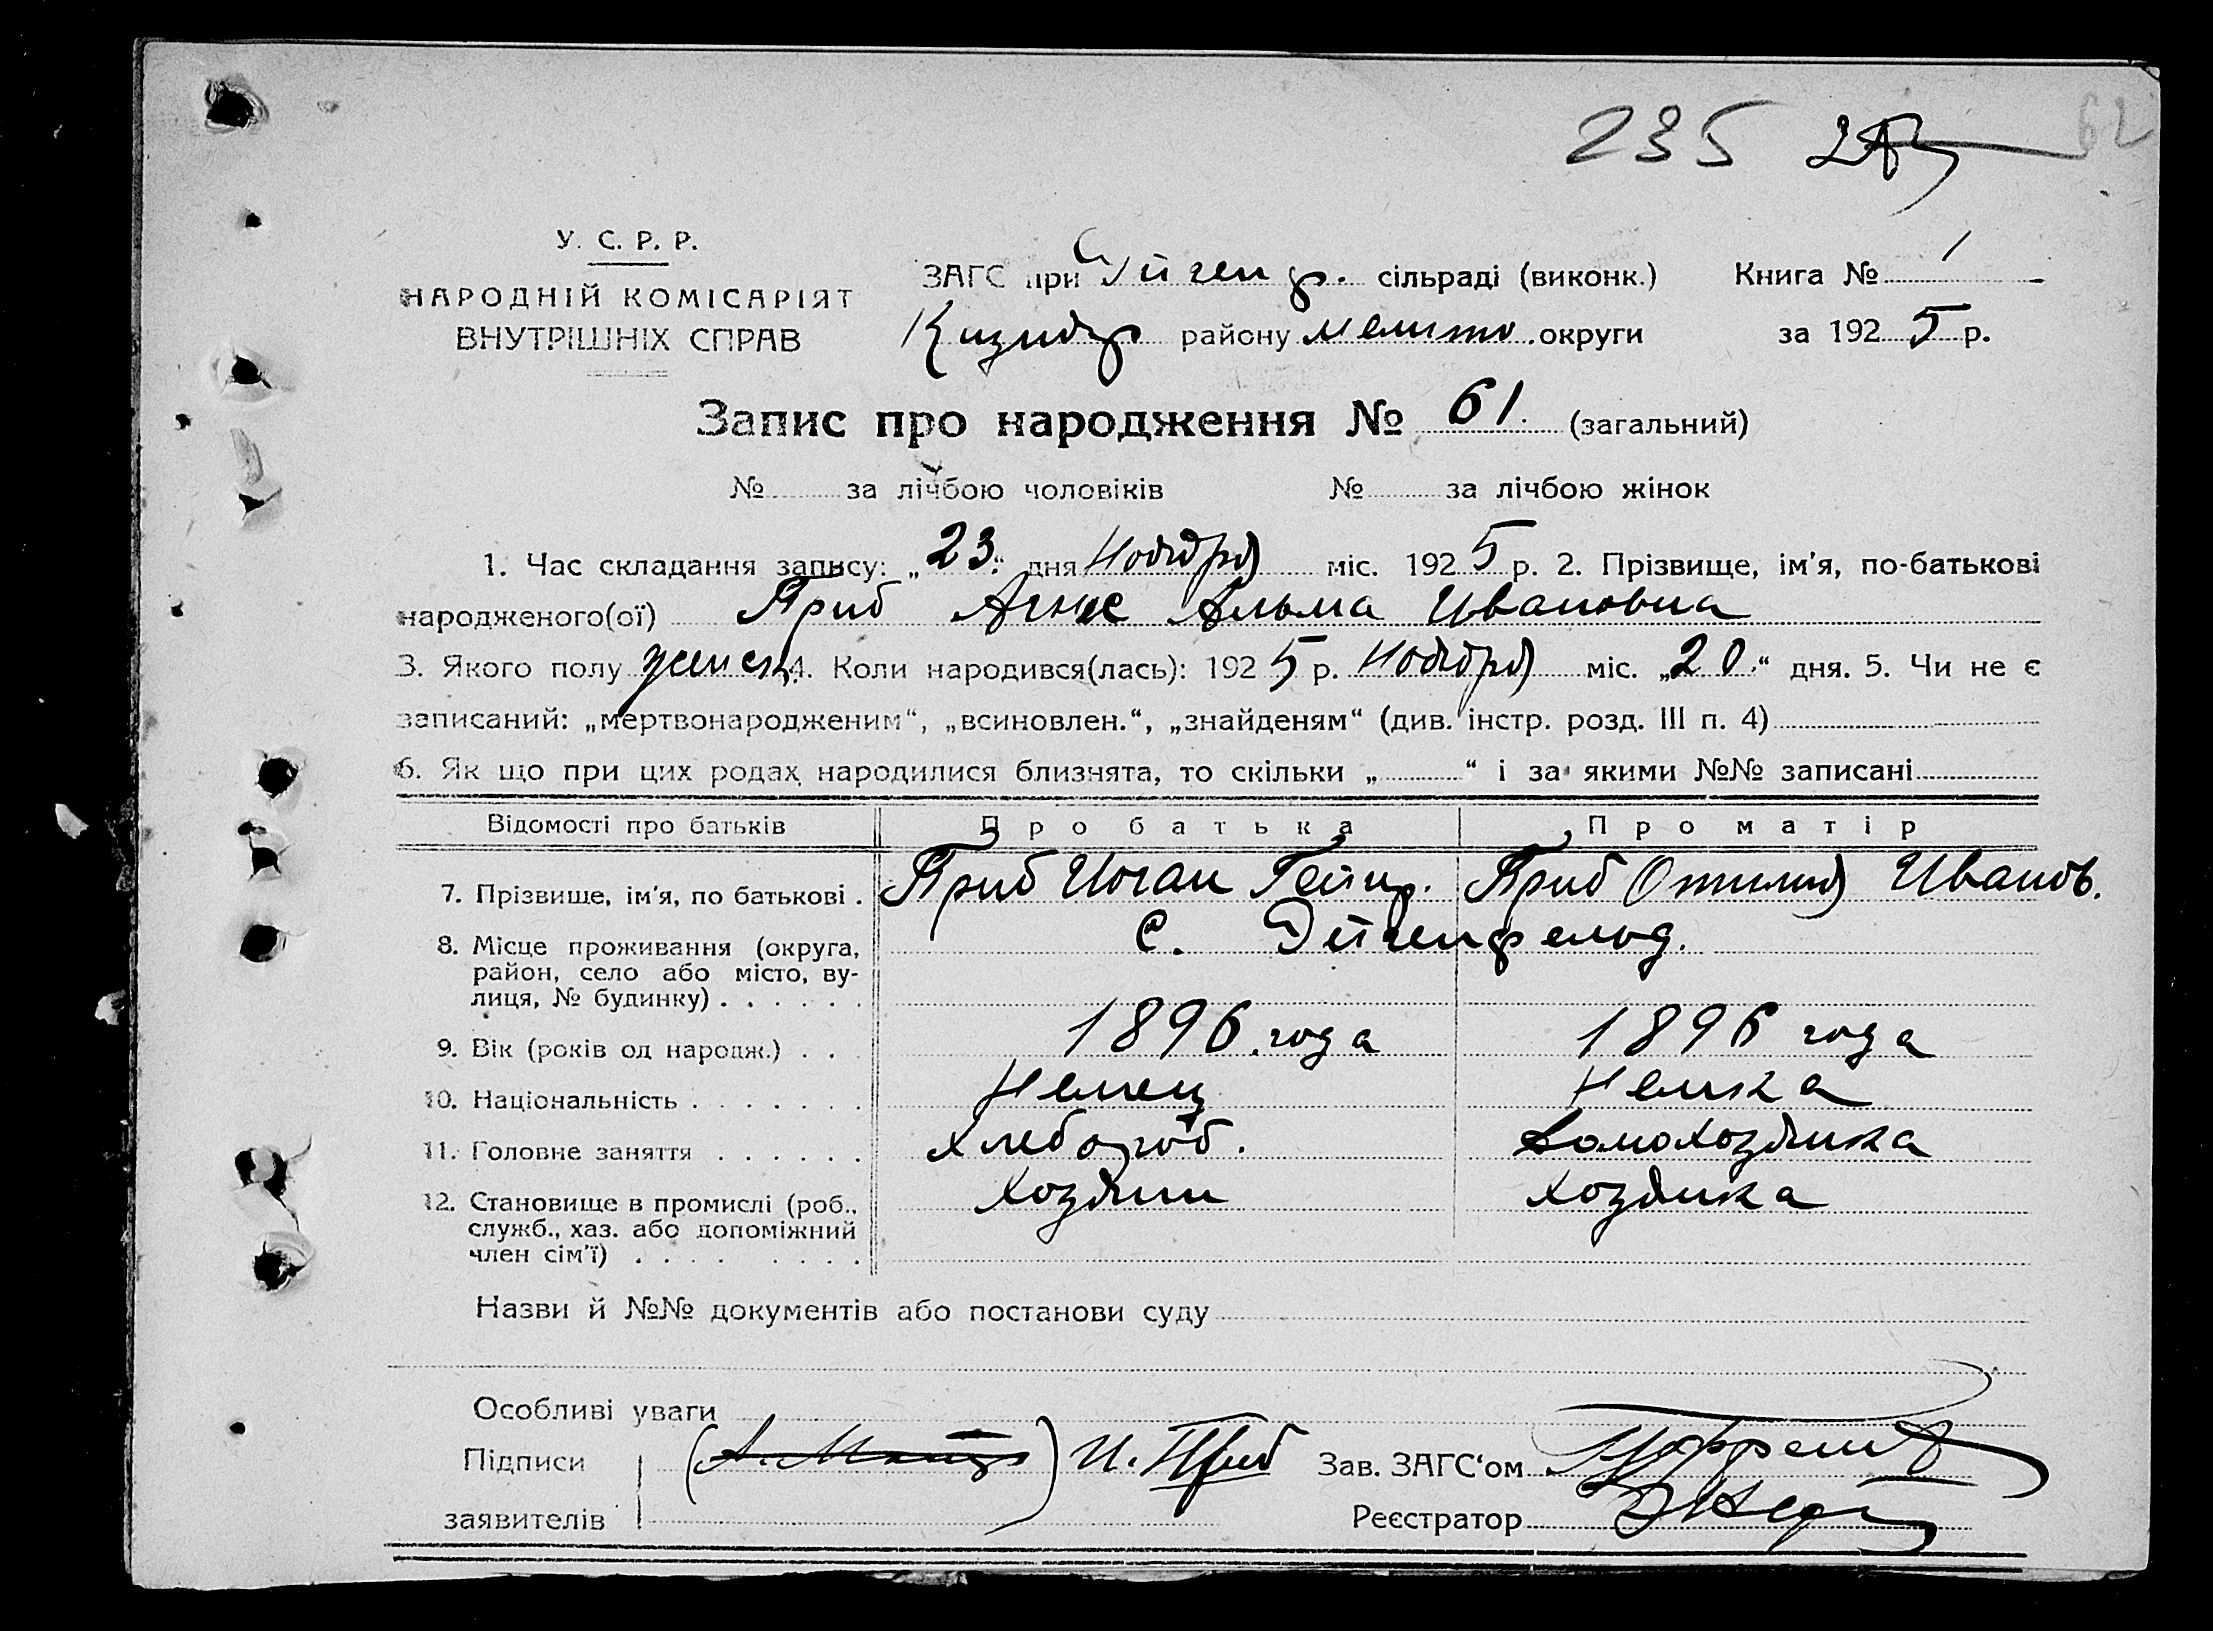 235
62
У. С. Р. Р.
НАРОДНІЙ КОМІСАРІЯТ
ВНУТРІШНІХ СПРАВ
ЗАГС при Эйгенф. сільраді (виконк.) Книга № 1
району Мелито. округи за 1925 р.
Запис про народження № 61. (загальний)
№ за лічбою чоловіків № за лічбою жінок
1. Час складання запису: „23.“ дня Ноября міс. 1925 р. 2. Прізвище, ім'я, по-батькові
народженого(ої) Приб Агнес Альма Ивановна
3. Якого полу женск. 4. Коли народився(лась): 1925 р. Ноября міс. „20.“ дня. 5. Чи не є
записаний: „мертвонародженим“, „всиновлен.“, „знайденям“ (див. інстр. розд. III п. 4)
6. Як що при цих родах народилися близнята, то скільки „ “ і за якими №№ записані
Відомості про батьків Про батька Про матір
7. Прізвище, ім'я, по батькові . Приб Иоган Гейнр. Приб Отилия Иванов.
8. Місце проживання (округа, район, село або місто, ву-лиця, № будинку) . . . . . . с. Эйгенфельд.
9. Вік (років од народж.) . . . 1896. года 1896 года
10. Національність . . . . . . . Немец Немка
11. Головне заняття . . . . . . Хлебороб. Домохозяйка
12. Становище в промислі (роб., служб., хаз. або допоміжний член сім'ї) . . . . . . . . Хозяин Хозяйка
Назви й №№ документів або постанови суду
Особливі уваги
Підписи И. Приб Зав. ЗАГС'ом
заявителів Реєстратор